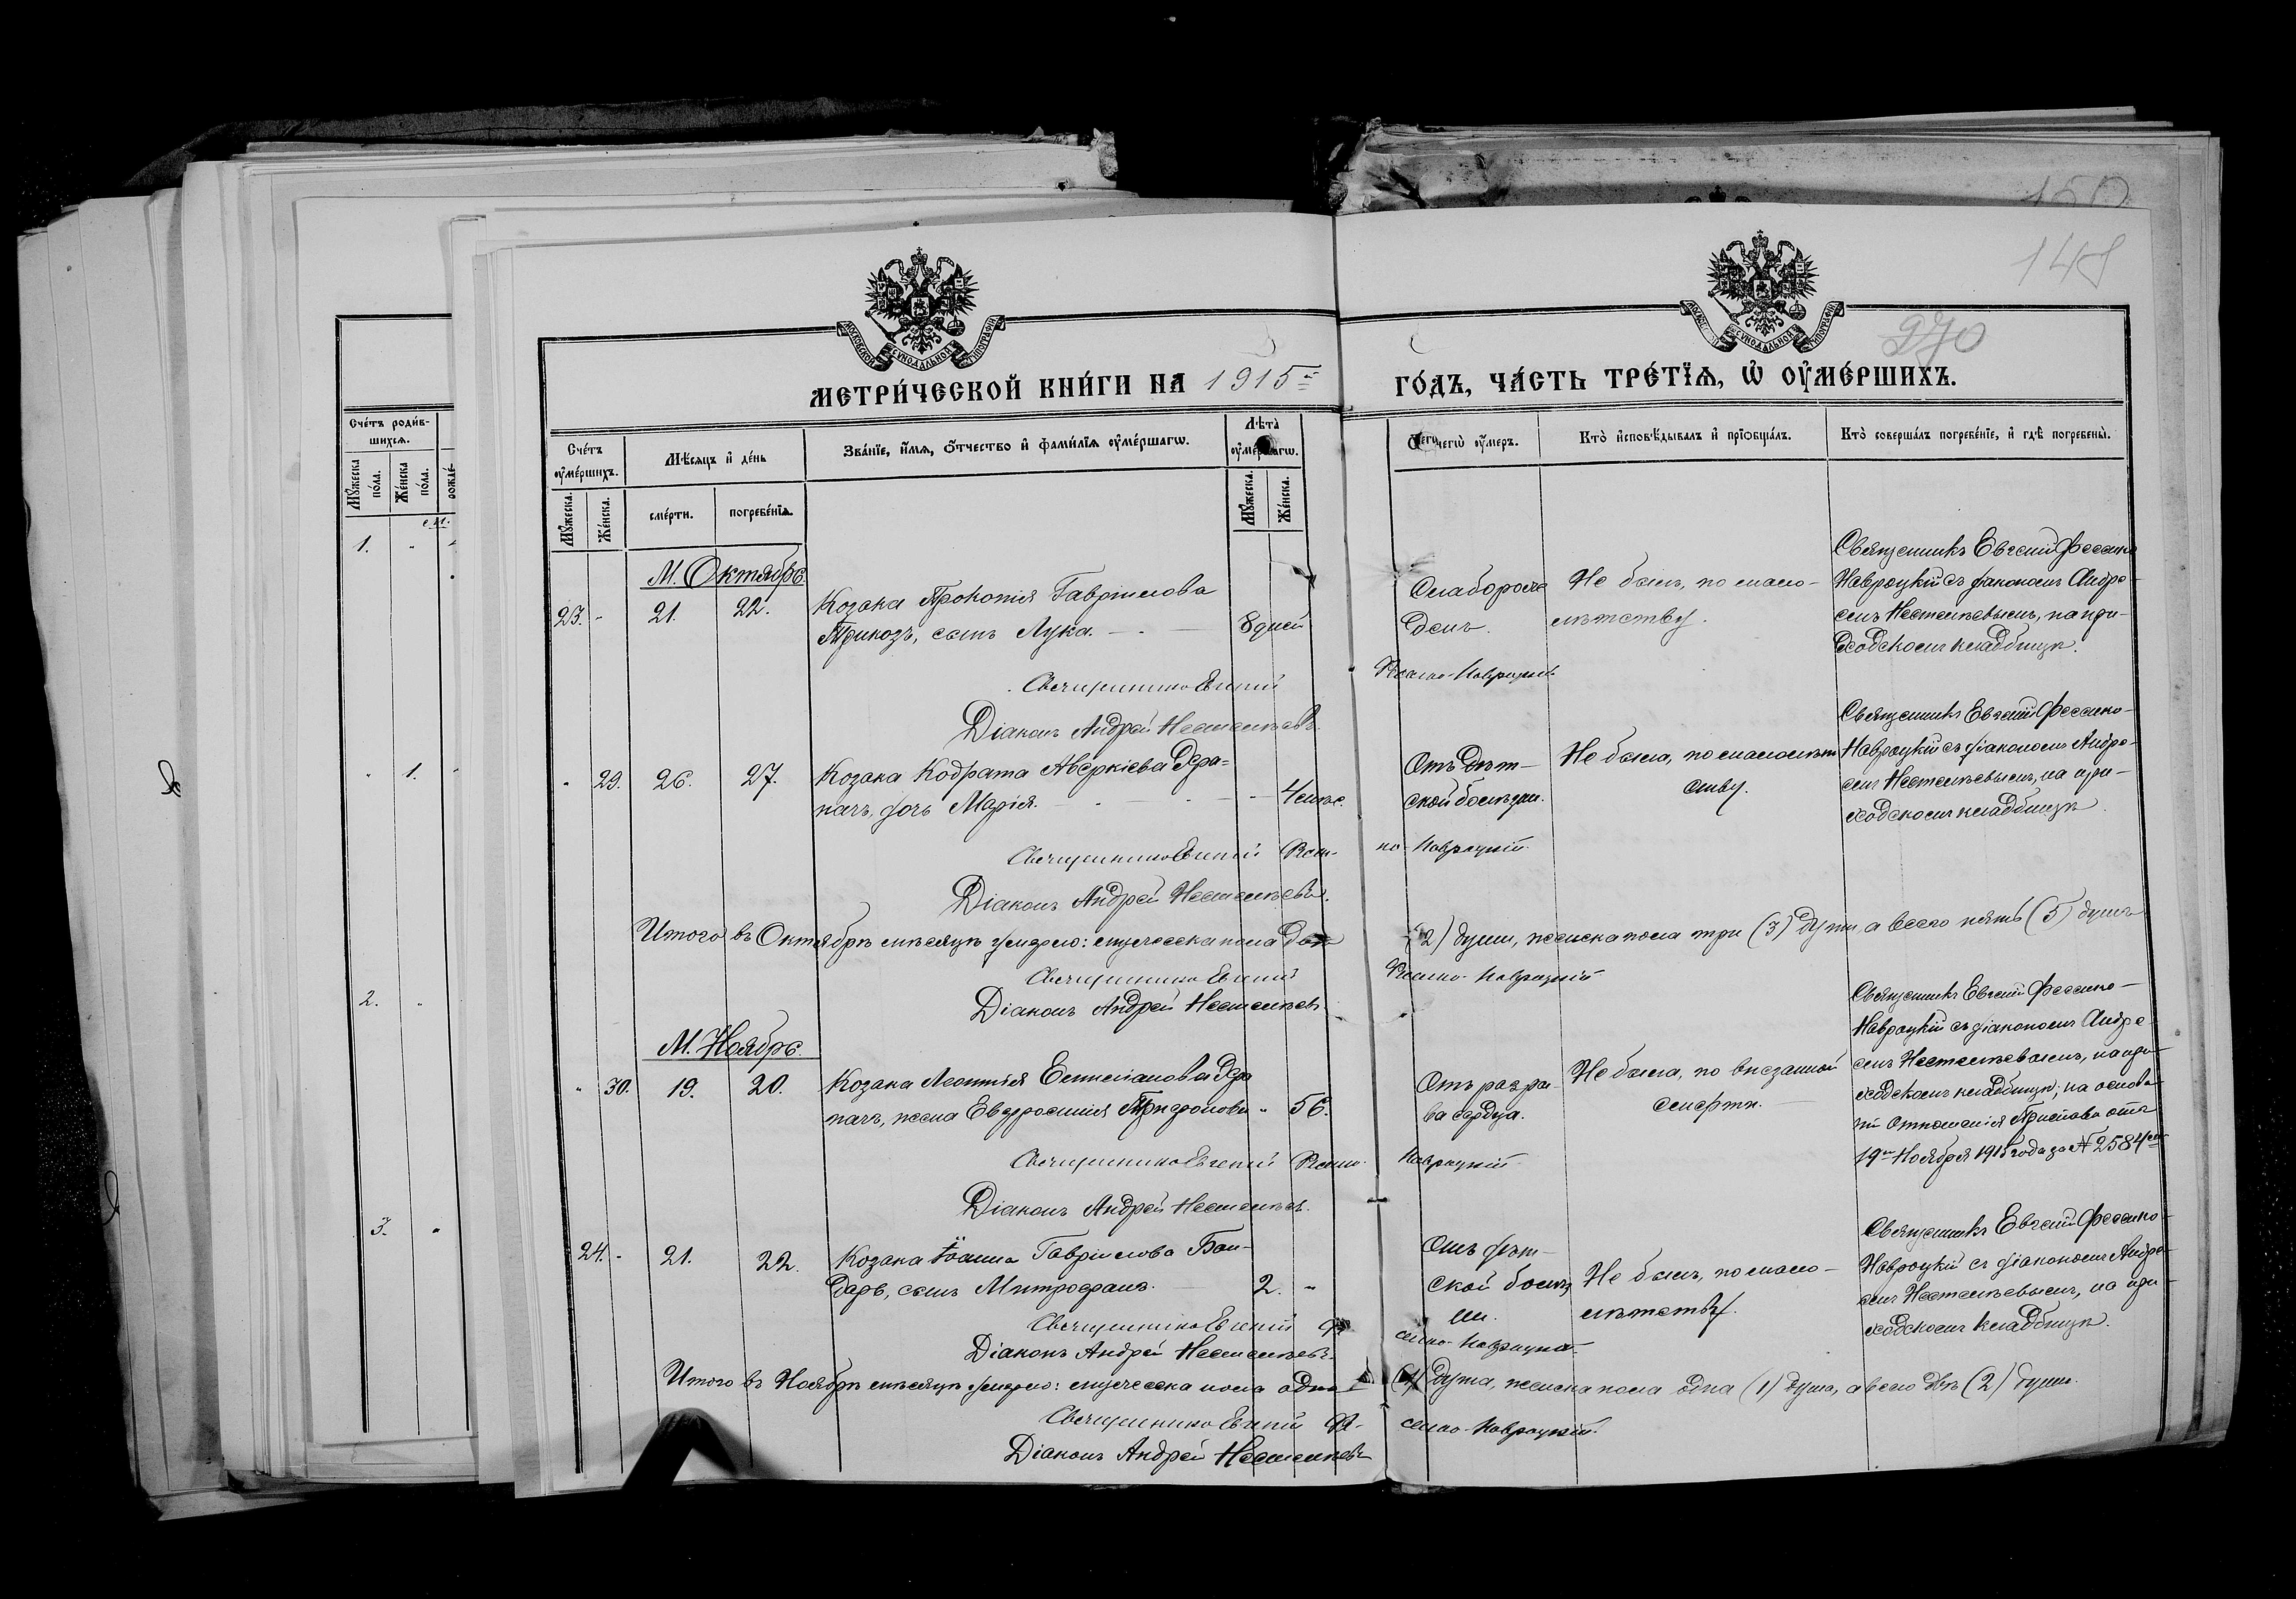 150
148
270
МОСКОВСКОЙ СѴНОДАЛЬНОЙ ТИПОГРАФІИ
МЕТРИ́ЧЕСКОЙ КНИ́ГИ НА 1915 ГО́ДЪ, ЧА́СТЬ ТРЕ́ТЇѦ, Ѽ ОУМЕ́РШИХЪ.
Сче́тъ роди́в-
шихсѧ.
Мꙋжеска по́ла.
Же́нска по́ла.
Сче́тъ оумершихъ.
Мꙋжеска.
Же́нска.
Мѣ́сѧцъ и де́нь
сме́рти.
погребе́нїѧ.
Зва́нїе, и́мѧ, ѻ́тчество и фами́лїѧ оуме́ршагѡ.
Лѣта̀ оуме́ршагѡ.
Мꙋжеска.
Же́нска.
Ѿ чегѡ̀ оу́меръ.
Кто̀ исповѣ́дывалъ и прїѡбща́лъ.
Кто̀ соверша́лъ погребе́нїе, и гдѣ̀ погребены̀.
М. Октябрь.
23. - 21. 22.
Козака Прокопія Гавріилова
Трикозъ, сынъ Лука.
8 дней
Слаборож-
денъ.
Не былъ, по мало-
лѣтству.
Священникъ Евгеній Фесенко
Навроцкій съ діакономъ Андре-
емъ Нестелѣевымъ, на при-
ходскомъ кладбищѣ.
Священникъ Евгеній Фесенко-Навроцкій
Діаконъ Андрей
- 29. 26. 27.
Козака Кодрата Аверкіева Дра-
начъ, дочь Марія.
4 мѣс.
Отъ дѣт-
ской болѣзни.
Не была, по малолѣт
ству.
Священникъ Евгеній Фесенко-
Навроцкій съ діакономъ Андре-
емъ на при-
ходскомъ кладбищѣ.
Священникъ Евгеній Фесен-
ко-Навроцкій.
Діаконъ Андрей
Итого въ Октябрѣ мѣсяцѣ умерло: мужеска пола двѣ (2) души, женска пола три (3) души, а всего пять (5) душъ
Священникъ Евгеній Фесенко-Навроцкій
Діаконъ Андрей
М. Ноябрь.
- 30. 19. 20.
Козака Леонтія Емеліанова Дра
начъ, жена Евфросинія Трифонова
56.
Отъ разры-
ва сердца.
Не была, по внезапной
смерти.
Священникъ Евгеній Фесенко-
Навроцкій съ діакономъ Андре
емъ на при-
ходскомъ кладбищѣ, на основа-
ніи отношенія Пристава отъ
19го Ноября 1915 года за № 2584
Священникъ Евгеній Фесенко-
Навроцкій
Діаконъ Андрей
24. - 21. 22.
Козака Іоанна Гавріилова Бон-
дарь, сынъ Митрофанъ.
2. -
Отъ дѣт-
ской болѣз
ни.
Не былъ, по мало-
лѣтству.
Священникъ Евгеній Фесенко-
Навроцкій съ діакономъ Андре-
емъ на при-
ходскомъ кладбищѣ.
Священникъ Евгеній Фе
сенко-Навроцкій
Діаконъ Андрей
Итого въ Ноябрѣ мѣсяцѣ умерло: мужеска пола одна (1) душа, женска пола одна (1) душа, а всего двѣ (2) души.
Священникъ Евгеній Фе-
сенко-Навроцкій.
Діаконъ Андрей
1.
1.
2.
3.